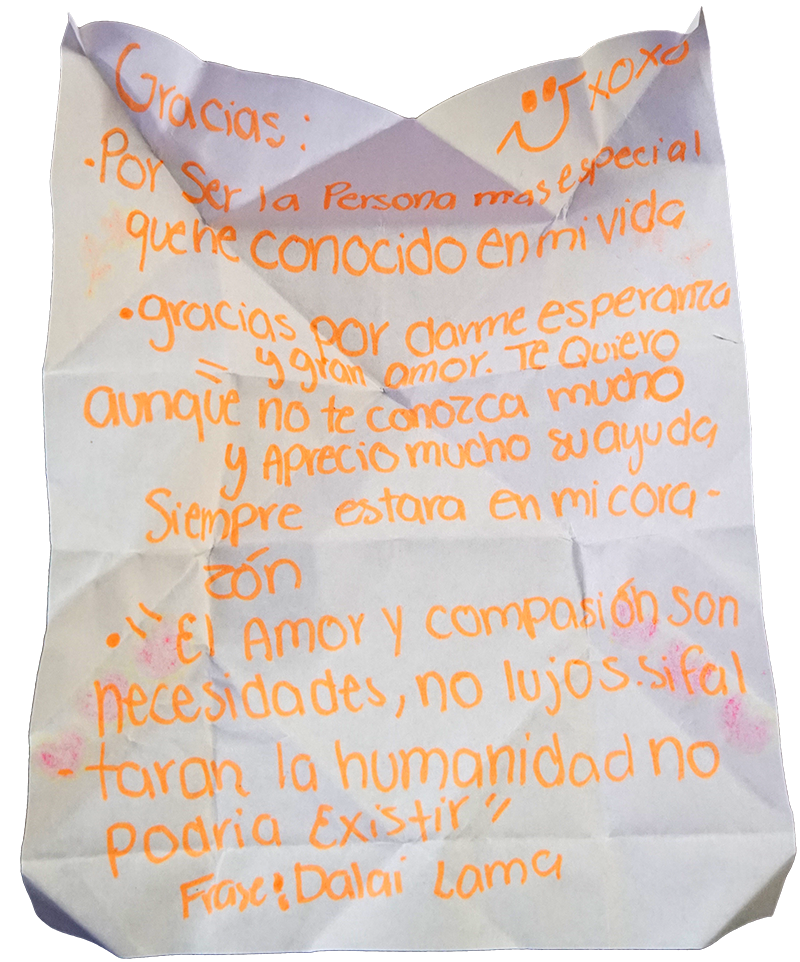 Gracias: xoxo
·Por Ser la Persona mas especial
que he conocido en mi vida
·gracias por darme esperanza
y gran amor. Te Quiero
aunque no te conozca mucho
y Aprecio mucho su ayuda
Siempre estara en mi cora-
zón
·" El Amor y compasión son
necesidades, no lujos. si fal
-taran la humanidad no
Podria Existir"
Frase: Dalai Lama